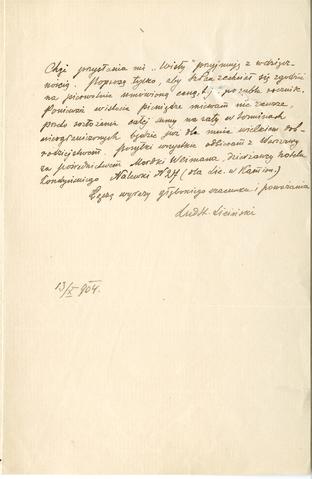 Chęć przysłania mi „Wisły” przyjmuję z wdzięcz-
nością. Poproszę tylko, aby WPan zechciał się zgodzić
na pierwotnie umówioną cenę, t.j. rubla rocznik.
Ponieważ wisłowe pieniądze miewam nie zawsze,
przeto rozłożenie całej sumy na raty w terminach
nieograniczonych będzie już dla mnie wielkiem dob-
rodziejstwem. Posyłki wszystkie odbieram z Warszawy
za pośrednictwem Mordki Wejmana, dzierżawcy hotelu
Londyńskiego Nalewki N 27 (dla Lic. w Kamion.)
Łączę wyrazy głębokiego szacunku i poważania
Lud. St. Liciński
13/X 904.